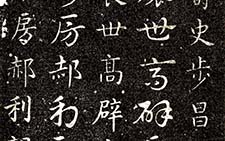 壽史步昌
世高辟
世高辟
房郝利
房郝利